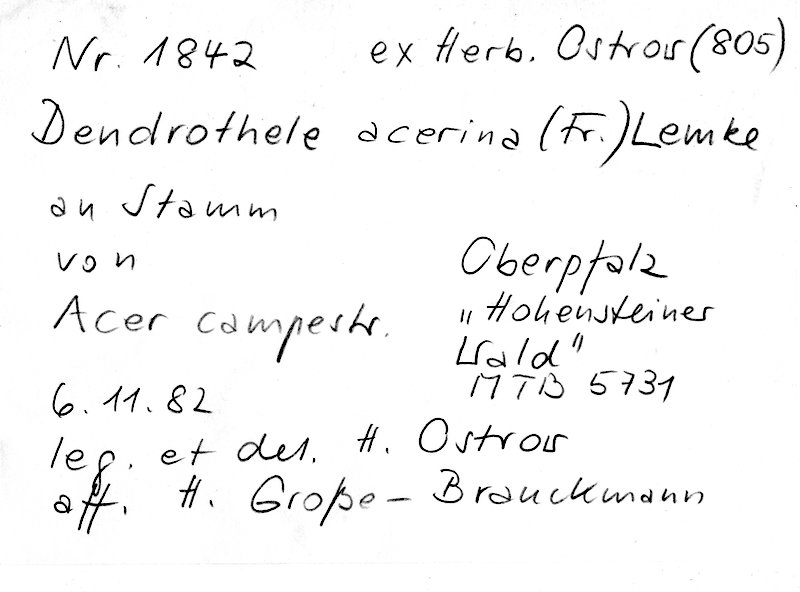 Nr. 1842 ex Herb. Ostrow (805)
Dendrothele acerina (Fr.) Lemke
an Stamm
von
Acer campestr.
Oberpfalz
"Hohensteiner
Wald"
MTB 5731
6.11.82
leg. et det. H. Ostrow
aff. H. Große-Brauckmann